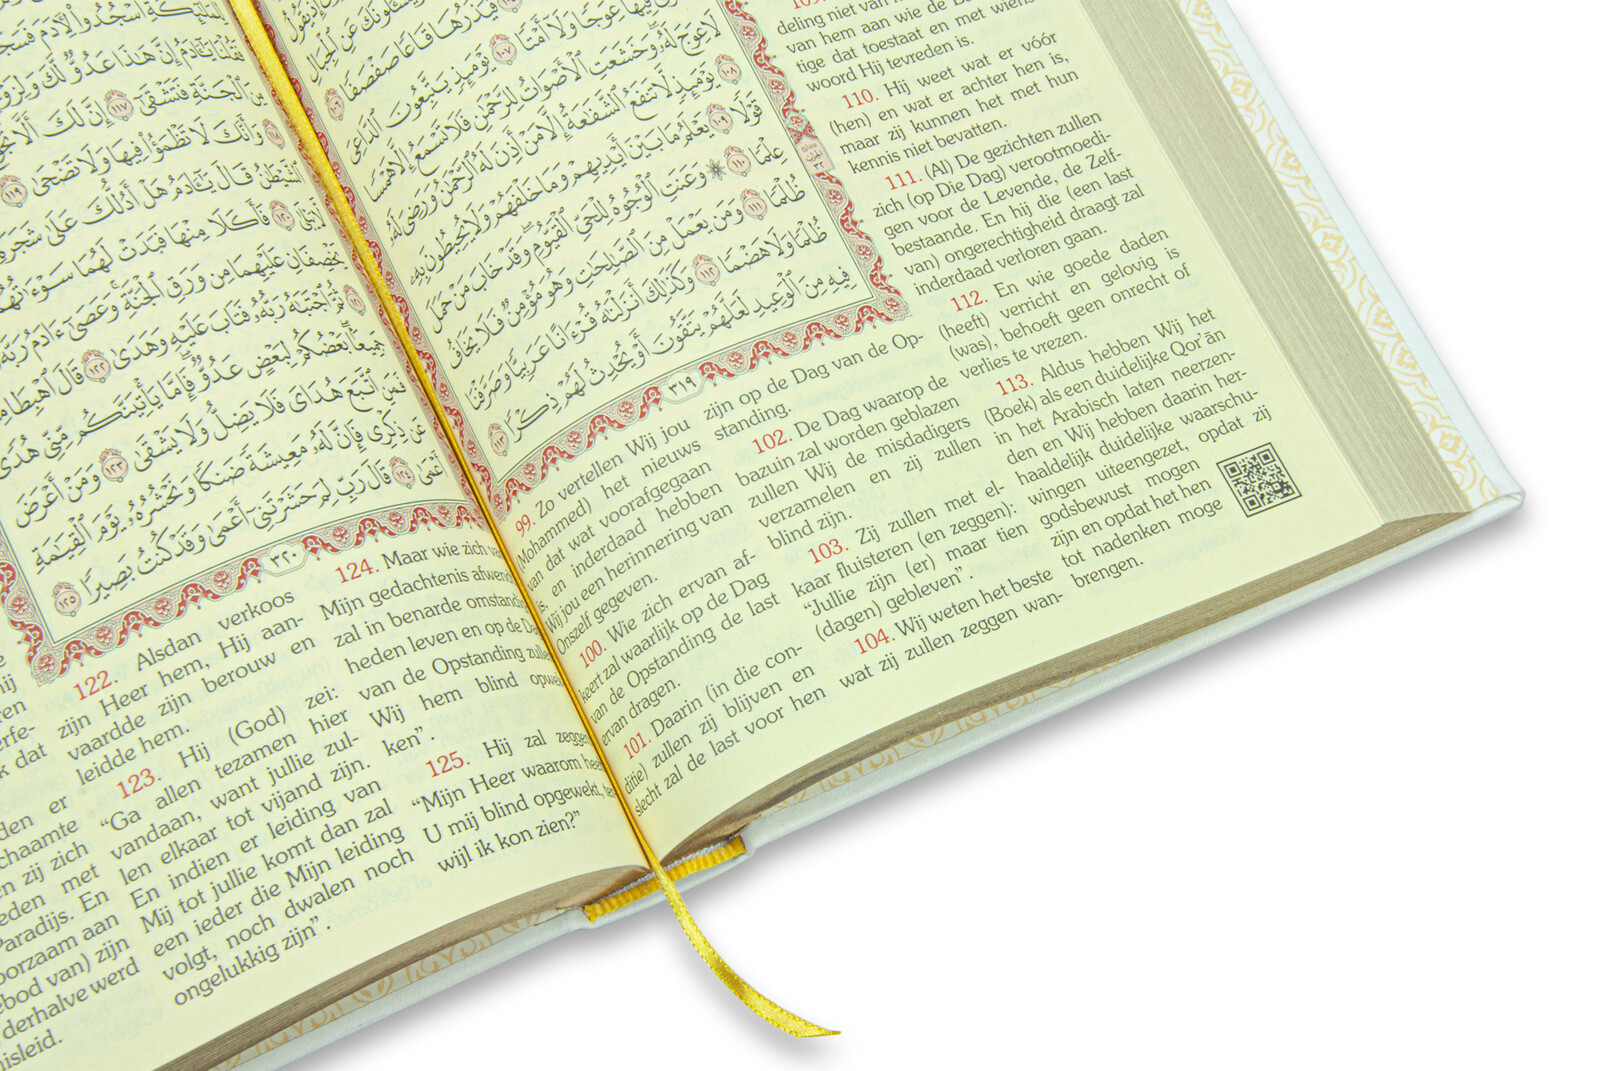 فَيَذَرُهَا قَاعًا صَفْصَفًا ١٠٦
فِيهَا عِوَجًا وَلَآ أَمْتًا ١٠٧ يَوْمَئِذٍ يَتَّبِعُونَ ٱلدَّاعِىَ
لَا عِوَجَ لَهُۥ وَخَشَعَتِ ٱلْأَصْوَاتُ لِلرَّحْمَٰنِ فَلَا تَسْمَعُ إِلَّا هَمْسًا
١٠٨ يَوْمَئِذٍ لَّا تَنفَعُ ٱلشَّفَٰعَةُ إِلَّا مَنْ أَذِنَ لَهُ ٱلرَّحْمَٰنُ وَرَضِىَ لَهُۥ
قَوْلًا ١٠٩ يَعْلَمُ مَا بَيْنَ أَيْدِيهِمْ وَمَا خَلْفَهُمْ وَلَا يُحِيطُونَ بِهِۦ
عِلْمًا ١١٠ وَعَنَتِ ٱلْوُجُوهُ لِلْحَىِّ ٱلْقَيُّومِ وَقَدْ خَابَ مَنْ حَمَلَ
ظُلْمًا ١١١ وَمَن يَعْمَلْ مِنَ ٱلصَّٰلِحَٰتِ وَهُوَ مُؤْمِنٌ فَلَا يَخَافُ
ظُلْمًا وَلَا هَضْمًا ١١٢ وَكَذَٰلِكَ أَنزَلْنَٰهُ قُرْءَانًا عَرَبِيًّا وَصَرَّفْنَا
فِيهِ مِنَ ٱلْوَعِيدِ لَعَلَّهُمْ يَتَّقُونَ أَوْ يُحْدِثُ لَهُمْ ذِكْرًا ١١٣
٣١٩
99. Zo vertellen Wij jou
(Mohammed) het nieuws
van dat wat voorafgegaan
is, en inderdaad hebben
Wij jou een herinnering van
Onszelf gegeven.
100. Wie zich ervan af-
keert zal waarlijk op de Dag
van de Opstanding de last
ervan dragen.
101. Daarin (in die con-
ditie) zullen zij blijven en
slecht zal de last voor hen
zijn op de Dag van de Op-
standing.
102. De Dag waarop de
bazuin zal worden geblazen
zullen Wij de misdadigers
verzamelen en zij zullen
blind zijn.
103. Zij zullen met el-
kaar fluisteren (en zeggen):
“Jullie zijn (er) maar tien
(dagen) gebleven”.
104. Wij weten het beste
wat zij zullen zeggen wan-
deling niet van
van hem aan wie de
tige dat toestaat en met wiens
woord Hij tevreden is.
110. Hij weet wat er vóór
(hen) en wat er achter hen is,
maar zij kunnen het met hun
kennis niet bevatten.
111. (Al) De gezichten zullen
zich (op Die Dag) verootmoedi-
gen voor de Levende, de Zelf-
bestaande. En hij die (een last
van) ongerechtigheid draagt zal
inderdaad verloren gaan.
112. En wie goede daden
(heeft) verricht en gelovig is
(was), behoeft geen onrecht of
verlies te vrezen.
113. Aldus hebben Wij het
(Boek) als een duidelijke Qor’ān
in het Arabisch laten neerzen-
den en Wij hebben daarin her-
haaldelijk duidelijke waarschu-
wingen uiteengezet, opdat zij
godsbewust mogen
zijn en opdat het hen
tot nadenken moge
brengen.
فَقُلْنَا يَٰٓـَٔادَمُ إِنَّ هَٰذَا عَدُوٌّ لَّكَ وَلِزَوْ
مِنَ ٱلْجَنَّةِ فَتَشْقَىٰٓ ١١٧ إِنَّ لَكَ أَلَّا
وَأَنَّكَ لَا تَظْمَؤُا۟ فِيهَا وَلَا تَضْحَىٰ ١١٩
ٱلشَّيْطَٰنُ قَالَ يَٰٓـَٔادَمُ هَلْ أَدُلُّكَ عَلَىٰ شَجَرَةِ
لَّا يَبْلَىٰ ١٢٠ فَأَكَلَا مِنْهَا فَبَدَتْ لَهُمَا سَوْءَٰتُهُمَا
يَخْصِفَانِ عَلَيْهِمَا مِن وَرَقِ ٱلْجَنَّةِ وَعَصَىٰٓ ءَادَمُ رَبَّهُۥ
ثُمَّ ٱجْتَبَٰهُ رَبُّهُۥ فَتَابَ عَلَيْهِ وَهَدَىٰ ١٢٢ قَالَ ٱهْبِطَا
جَمِيعًۢا بَعْضُكُمْ لِبَعْضٍ عَدُوٌّ فَإِمَّا يَأْتِيَنَّكُم مِّنِّى هُدًى
فَمَنِ ٱتَّبَعَ هُدَاىَ فَلَا يَضِلُّ وَلَا يَشْقَىٰ ١٢٣ وَمَنْ أَعْرَضَ
عَن ذِكْرِى فَإِنَّ لَهُۥ مَعِيشَةً ضَنكًا وَنَحْشُرُهُۥ يَوْمَ ٱلْقِيَٰمَةِ
أَعْمَىٰ ١٢٤ قَالَ رَبِّ لِمَ حَشَرْتَنِىٓ أَعْمَىٰ وَقَدْ كُنتُ بَصِيرًا ١٢٥
٣٢٠
k dat
en zij zich
Paradijs. En
122. Alsdan verkoos
zijn Heer hem, Hij aan-
vaardde zijn berouw en
leidde hem.
123. Hij (God) zei:
“Ga allen tezamen hier
vandaan, want jullie zul-
len elkaar tot vijand zijn.
En indien er leiding van
Mij tot jullie komt dan zal
een ieder die Mijn leiding
volgt, noch dwalen noch
ongelukkig zijn”.
124. Maar wie zich
Mijn gedachtenis
zal in benarde
heden leven en op de
van de Opstanding
Wij hem blind
ken”.
125. Hij zal
“Mijn Heer waarom
U mij blind opgewekt,
wijl ik kon zien?”